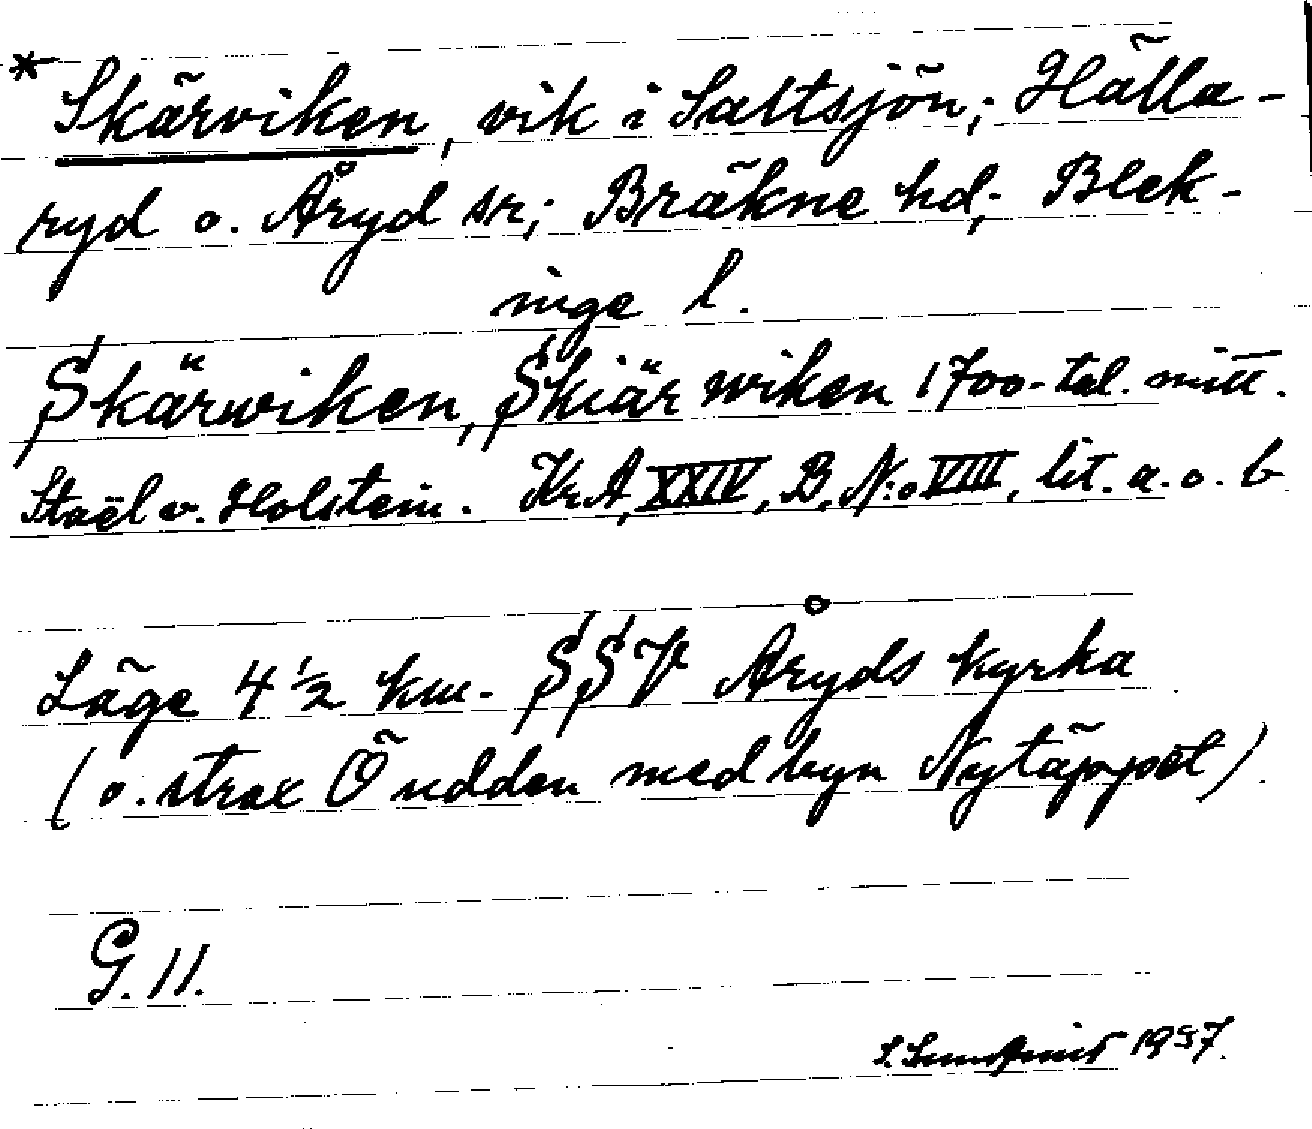 * Skärviken, vik i Saltsjön; Hälla-
ryd o. Åryd sn; Bräkne hd; Blek-
inge l.
Skärwiken, Skiär wiken 1700-tal. mitt.
Staël v. Holstein. Kr.A, XXIV, B, N:o VIII, lit. a. o. b
Läge 4 1/2 km. SSV Åryds kyrka
(o. strax Ö udden med byn Nytäppet).
G. 11.
1957.